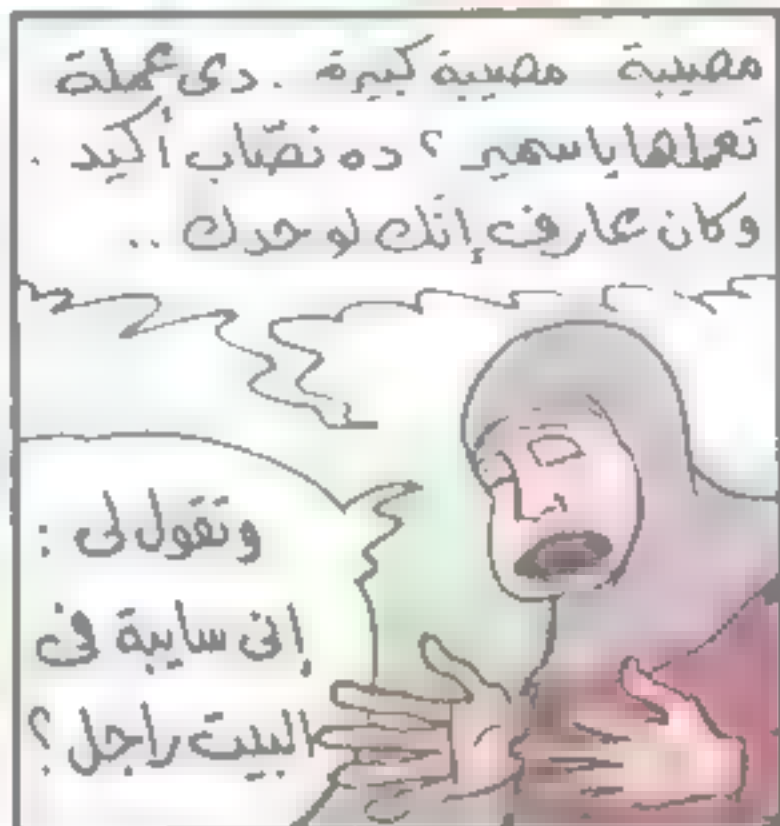 مصيبة مصيبة كبيرة . دى عملة
تعملها يا سمير ؟ ده نصّاب أكيد .
وكان عارف إنك لوحدك ..
وتقول لى :
إنى سايبة فى
البيت راجل ؟